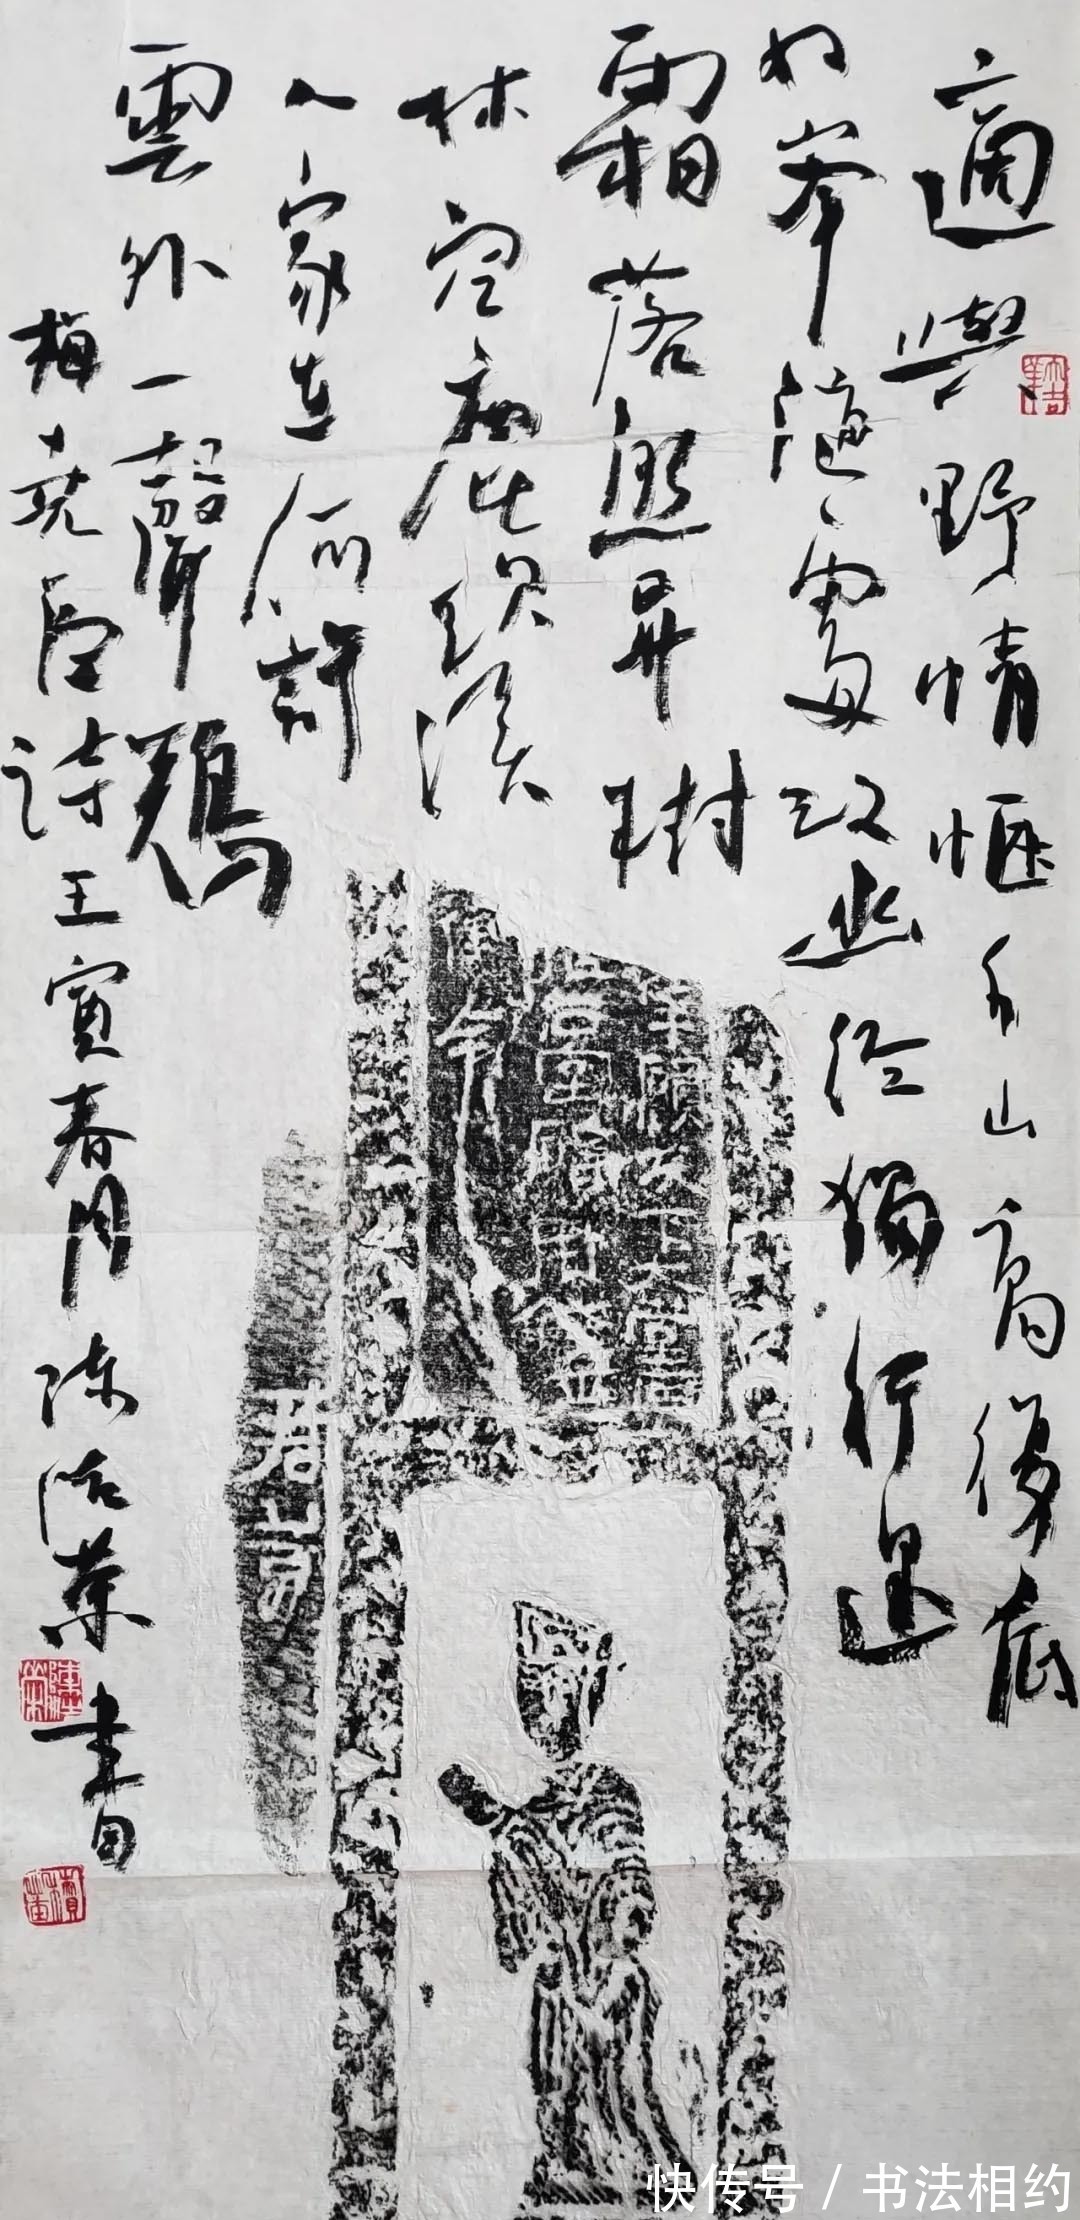 適與野情愜千山高復低
好峯隨處改幽徑獨行迷
霜落熊昇樹
林空鹿飲溪
人家在何許
雲外一聲鷄
梅堯臣詩壬寅春月陳書
快传号 / 书法相约